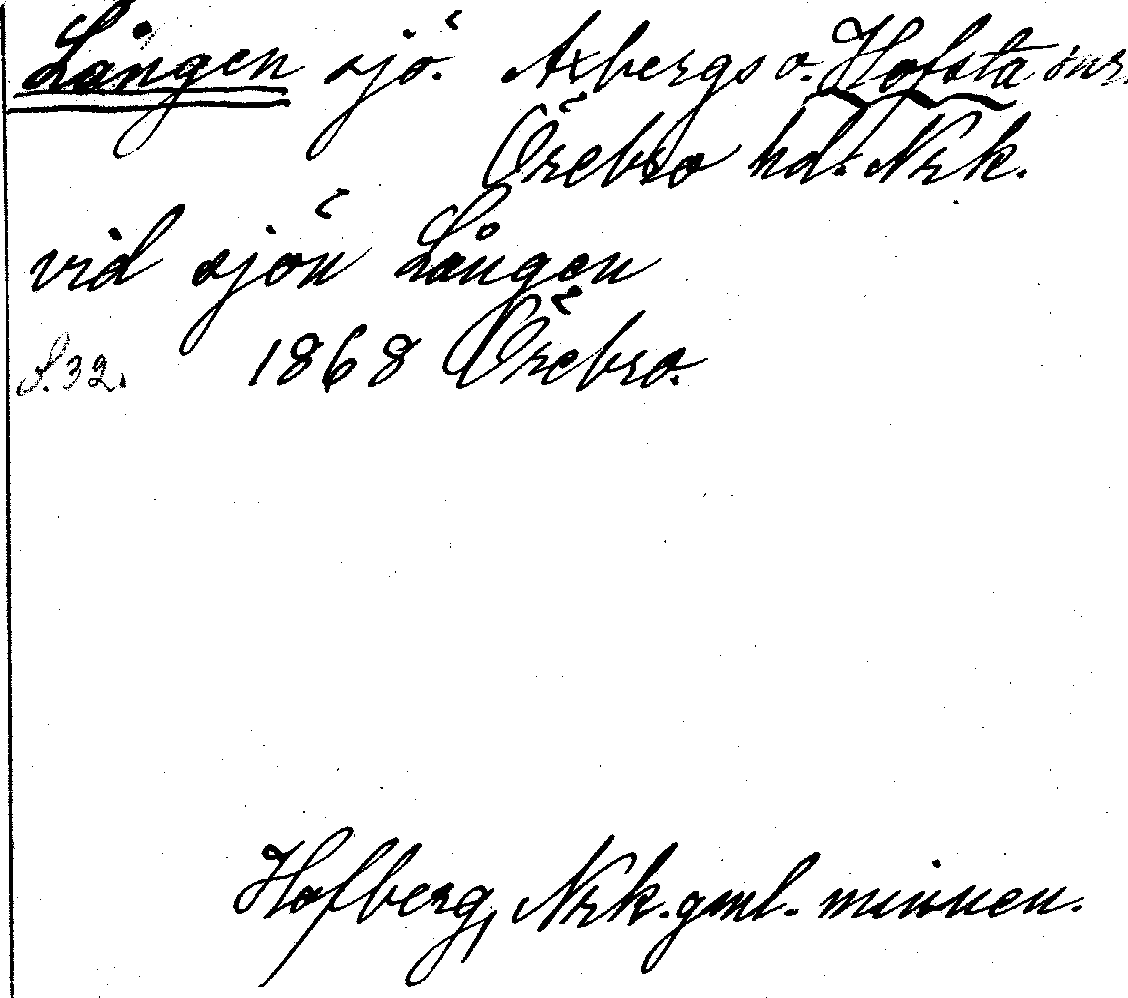 Lången sjö. Axbergs o. Hofsta snr.
Örebro hd. Nrk.
vid sjön Lången
S. 32. 1868 Örebro.
Hofberg, Nrk. gml. minnen.